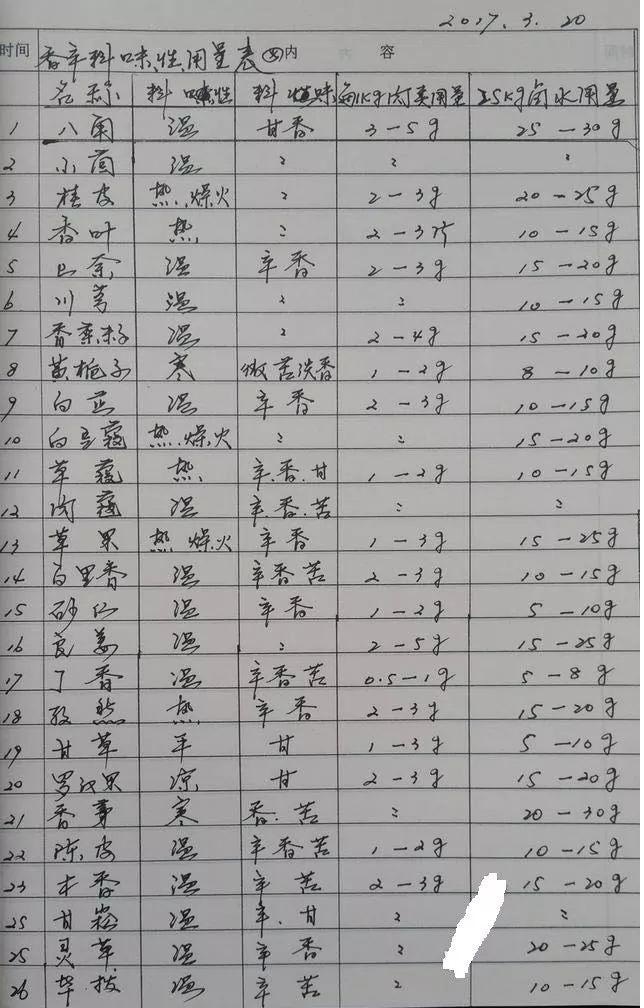 2017.3.20
时间 香辛料味性用量表(四)内 容
名称 料味性 料性味 每1Kg肉类用量 25Kg卤水用量
1 八角 温 甘香 3-5g 25-30g
2 小茴 温 〃 〃 〃
3 桂皮 热.燥火 〃 2-3g 20-25g
4 香叶 热 〃 2-3片 10-15g
5 山奈 温 辛香 2-3g 15-20g
6 川芎 温 〃 〃 10-15g
7 香菜籽 温 〃 2-4g 15-20g
8 黄栀子 寒 微苦淡香 1-2g 8-10g
9 白芷 温 辛香 2-3g 10-15g
10 白豆蔻 热.燥火 〃 〃 15-20g
11 草蔻 热 辛.香.甘 1-2g 10-15g
12 肉蔻 温 辛香.苦 〃 〃
13 草果 热 燥火 辛香 1-3g 15-25g
14 百里香 温 辛香苦 2-3g 10-15g
15 砂仁 温 辛香 1-2g 5-10g
16 良姜 温 〃 2-5g 15-25g
17 丁香 温 辛香苦 0.5-1g 5-8g
18 孜然 热 辛香 2-3g 15-20g
19 甘草 平 甘 1-3g 5-10g
20 罗汉果 凉 甘 2-3g 15-20g
21 香茅 寒 香.苦 〃 20-30g
22 陈皮 温 辛香苦 1-2g 10-15g
23 木香 温 辛苦 2-3g 15-20g
25 甘崧 温 辛.甘 〃 〃
25 灵草 温 辛香 〃 20-25g
26 荜拨 温 辛苦 〃 10-15g